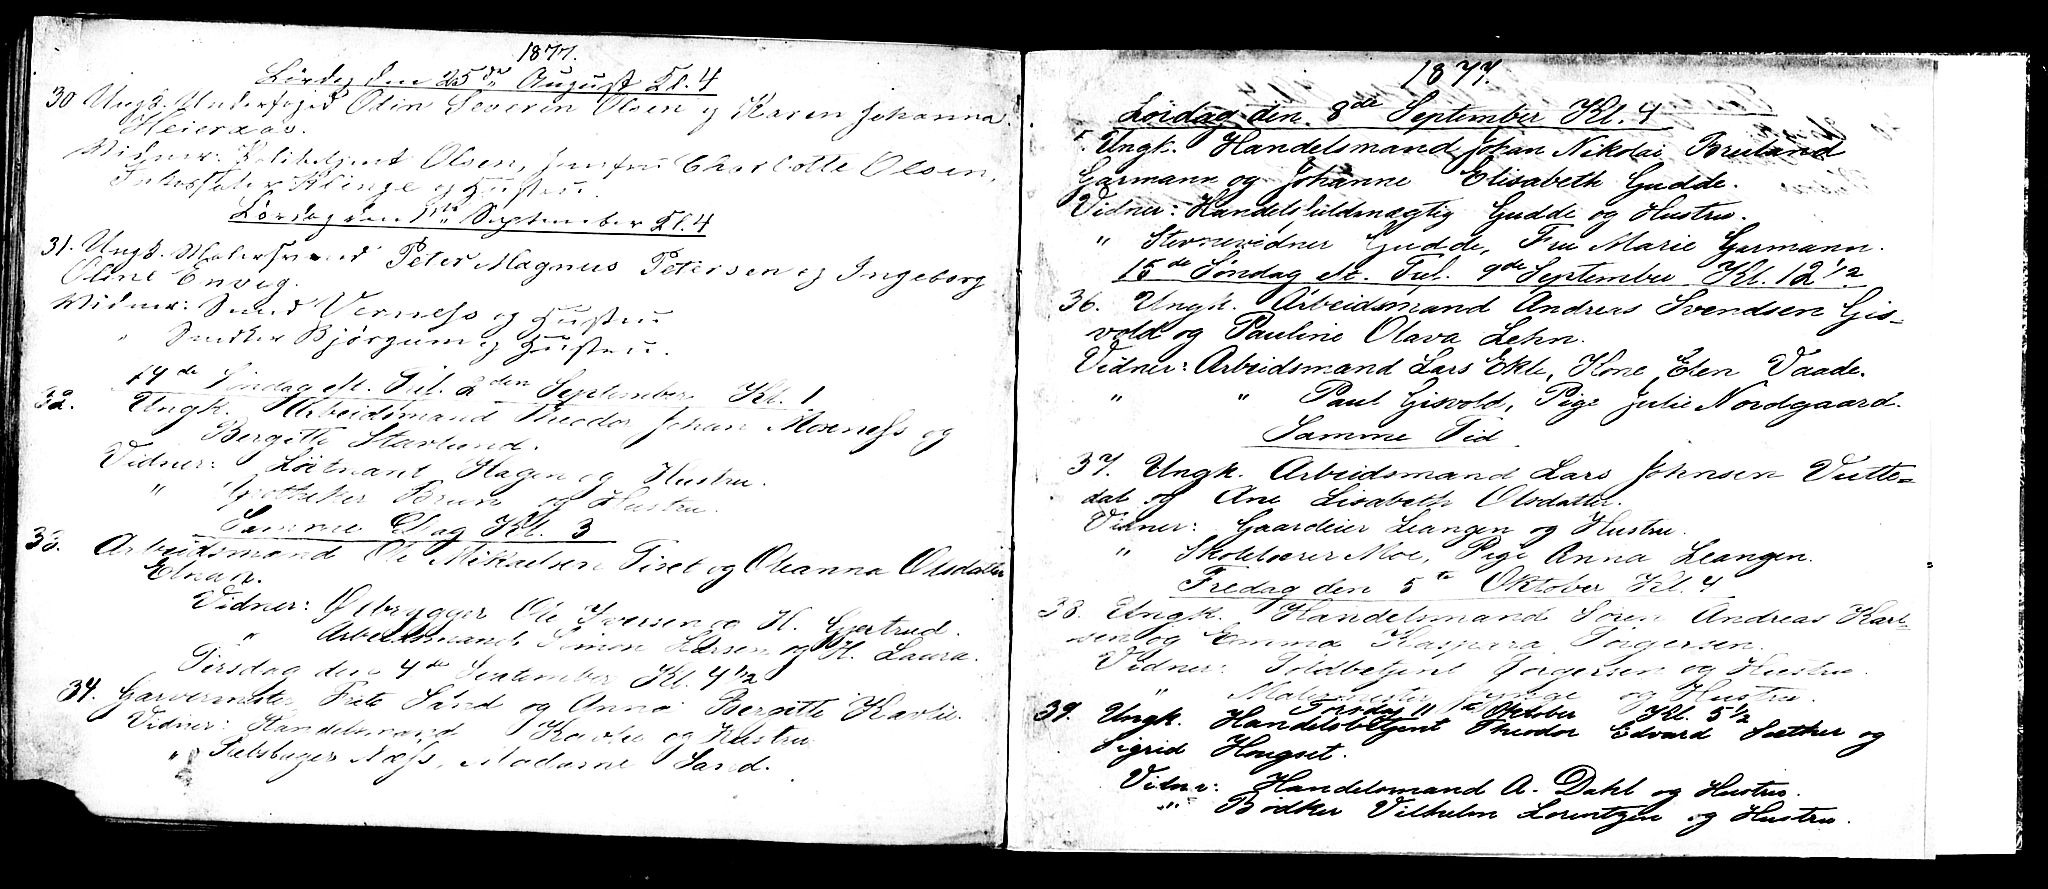 1877.
Lördag den 25de August Kl. 4
30 Ungk. Underfoged Odin Severin Olsen og Karen Johanna
Vidner: Politibetjent Olsen, Jomfru Charlotte Olsen,
Klinge og Hustru.
Lørdag den 1ste September Kl. 4
31. Ungk. Malersvend Peter Magnus Petersen og Ingeborg
Oline Envig.
Vidner: Smed Verness og Hustru
" Snedker Bjørgum og Hustru.
14de Søndag eft. Trl. 2den September Kl. 1
32. Ungk. Arbeidsmand Theodor Johan Moxness og
Bergitte Stavlund.
Vidner: Løitnant Hagen og Hustru.
" Apotheker Brun og Hustru.
Samme Dag Kl. 3
33. Arbeidsmand Ole Mikaelsen Tiset og Oleanna Olsdatter
Elnan.
Vidner: Ølbrygger Ole Iversen og H. Gjertrud.
" Arbeidsmand Simon Larsen og H. Laura.
Tirsdag den 4de September Kl. 4 1/2
34. Garvermester Fritz Sand og Anna Bergitte Kavlie.
Vidner: Handelsmand Kavlie og Hustru
" Næss, Madame Sand.
1877.
Lördag den 8de September Kl. 4
Ungk. Handelsmand Johan Nikolai Breiland
Garmann og Johanne Elisabeth Gudde.
Vidner: Handelsfuldmægtig Gudde og Hustru.
" Stevnevidner Gudde, Fru Marie Garmann.
15de Søndag eft. Trl. 9de September Kl. 12 1/2
36. Ungk. Arbeidsmand Andreas Svendsen Gis-
vold og Pauline Olava Lehn.
Vidner: Arbeidsmand Lars Ekle, Kone Elen Vaade.
" " Paul Gisvold, Pige Julie Nordgaard.
Samme Tid
37. Ungk. Arbeidsmand Lars Johnsen Vutte-
dal og Ane Lisabeth Olsdatter.
Vidner: Gaardeier Leangen og Hustru.
" Skolelærer Moe, Pige Anna Leangen.
Fredag den 5te Oktober Kl. 4
38. Ungk. Handelsmand Sören Andreas Karl-
sen og Emma Kaspara Torgersen.
Vidner: Toldbetjent Torgersen og Hustru.
" Malermester og Hustru.
Torsdag 11te Oktober Kl. 5 1/2
39. Ungk. Handelsbetjent Theodor Edvard Sæther og
Sigrid Hougset.
Vidner: Handelsmand A. Dahl og Hustru.
" Bödker Vilhelm Lorentzen og Hustru.